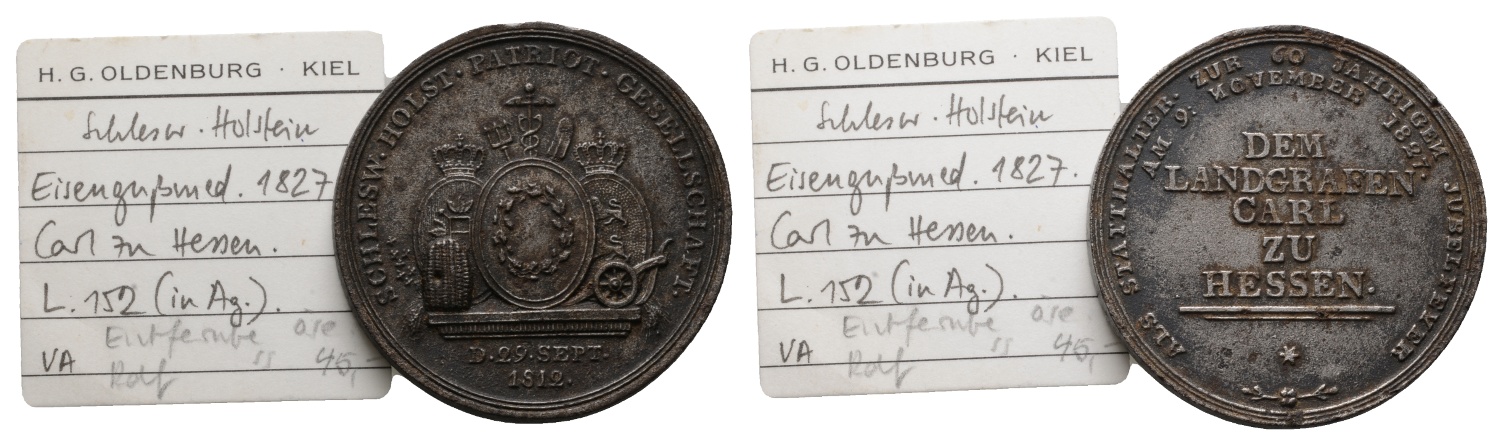 H. G. OLDENBURG · KIEL
Schlesw. Holstein
Eisengußmed. 1827
Carl zu Hessen.
L. 152 (in Ag.).
Entfernte öse
VA Rdf ss 45,-
SCHLESW. HOLST. PATRIOT. GESELLSCHAFT.
D. 29. SEPT.
1812.
H. G. OLDENBURG · KIEL
Schlesw. Holstein
Eisengußmed. 1827.
Carl zu Hessen.
L. 152 (in Ag.).
Entfernte öse
VA Rdf ss 45,-
ALS STATTHALTER. ZUR 60 JÄHRIGEN JUBELFEYER
AM 9: NOVEMBER 1827.
DEM
LANDGRAFEN
CARL
ZU
HESSEN.